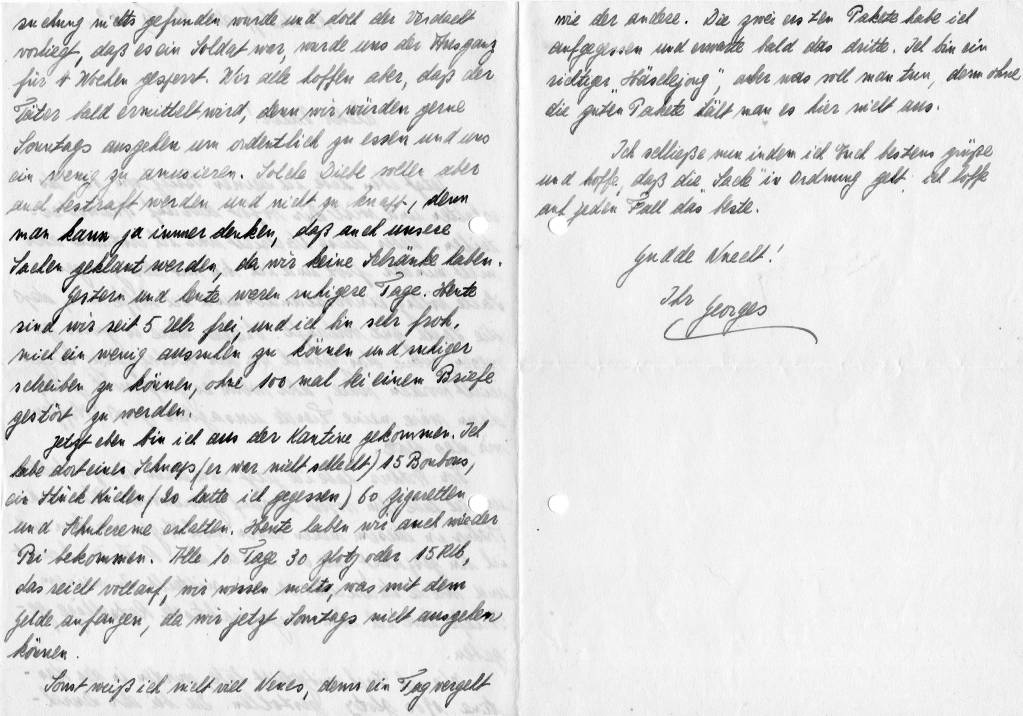 suchung nichts gefunden wurde und doch der Verdacht
vorliegt, daß es ein Soldat war, wurde uns der Ausgang
für 4 Wochen gesperrt. Wir alle hoffen aber, daß der
Täter bald ermittelt wird, denn wir würden gerne
Sonntags ausgehen um ordentlich zu essen und uns
ein wenig zu amusieren. Solche Diebe sollen aber
auch bestraft werden und nicht zu knapp, denn
man kann ja immer denken, daß auch unsere
Sachen geklaut werden, da wir keine Schränke haben.
Gestern und heute waren ruhigere Tage. Heute
sind wir seit 5 Uhr frei, und ich bin sehr froh,
mich ein wenig ausruhen zu können und ruhiger
schreiben zu können, ohne 100 mal bei einem Briefe
gestört zu werden.
Jetzt eben bin ich aus der Kantine gekommen. Ich
habe dort einen Schnaps (er war nicht schlecht) 15 Bonbons,
ein Stück Kuchen (20 hatte ich gegessen) 60 Zigaretten
und Schuhcreme erhalten. Heute haben wir auch wieder
Pri bekommen. Alle 10 Tage 30 Zloty oder 15 RM,
das reicht vollauf, wir wissen nichts, was mit dem
Gelde anfangen, da wir jetzt Sonntags nicht ausgehen
können.
Sonst weiß ich nicht viel Neues, denn ein Tag vergeht
wie der andere. Die zwei ersten Pakete habe ich
aufgegessen und erwarte bald das dritte. Ich bin ein
richtiger „Häselejong", aber was soll man tun, denn ohne
die guten Pakete hält man es hier nicht aus.
Ich schließe nun indem ich Euch bestens grüße
und hoffe, daß die „Sache" in Ordnung geht, ich hoffe
auf jeden Fall das beste.
Gudde Nuecht!
Ihr Georges